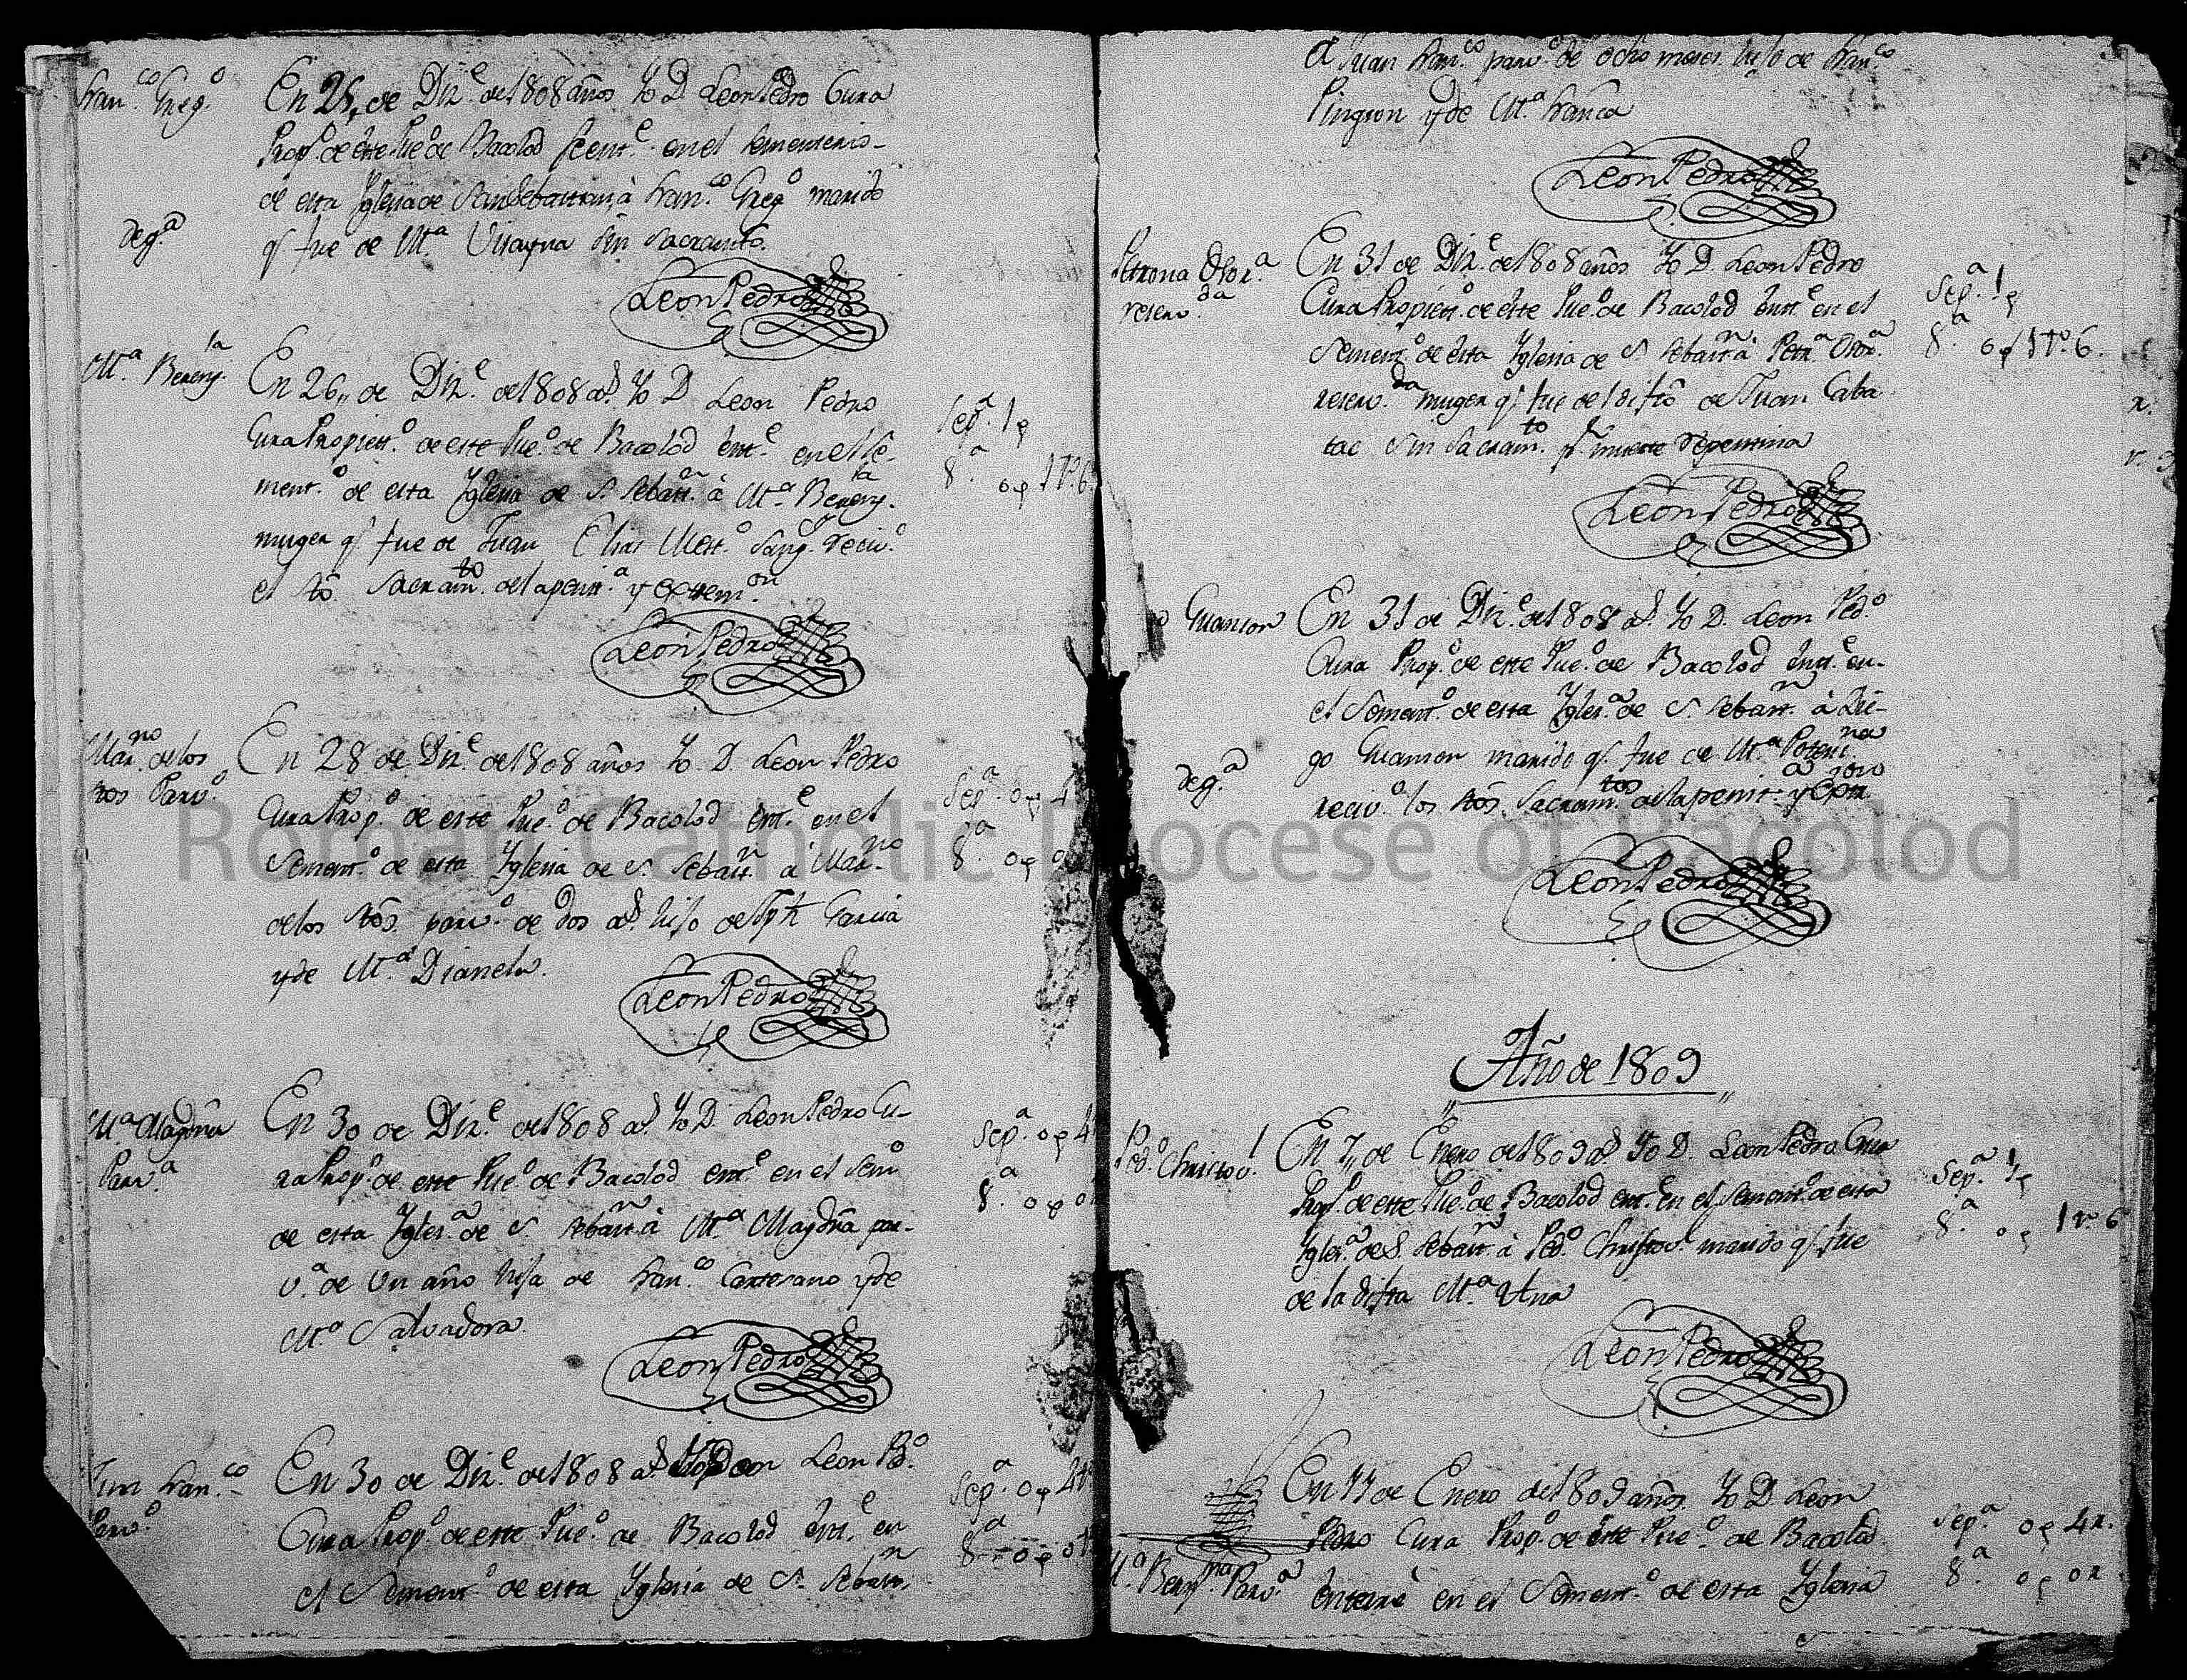 Fran.co Greg.o
En 25, de Diz.e de 1808 años Yo D. Leon Pedro Cura
Prop.o de este Pue.o de Bacolod en el Sementerio
de esta Yglesia de San Sebastian, à Fran.co Greg.o marido
deg.a
q.e fue de M.a sin Sacramto.
Leon Pedro
M.a Bereng.la
En 26,, de Diz.e de 1808 a.s Yo D Leon Pedro
Cura Propiett.o de este Pue.o de Bacolod ent.e en el Se-
ment.o de esta Yglesia de S. Sebatt.n à M.a Bereng.la
muger q.e fue de Juan Elias Mett.o Sang. reciv.o
el sto. Sacram.to de la penit.a y extrem.on
Sep.a 1 p
8.a 0 p 1 r.6
Leon Pedro
Mar.no de los
tos Parv.o
En 28 de Diz.e de 1808 años Yo D. Leon Pedro
Cura Prop.o de este Pue.o de Bacolod ent.e en el
Sement.o de esta Yglesia de S. Sebatt.n à Mar.no
de los Stos. parv.o de dos a.s hijo de Garcia
y de M.a Dianela.
Sep.a 0 p 4
8.a 0 p 0
Leon Pedro
M.a Magdna
Parv.a
En 30 de Diz.e de 1808 a.s Yo D. Leon Pedro Cu-
ra Prop.o de este Pue.o de Bacolod ent.e en el Sem.o
de esta Ygles.a de S. Sebatt.n à M.a Magdna par-
v.a de Un año hija de Fran.co Cartesano y de
M.a Salvadora.
Sep.a 0 p 4
8.a 0 p 0
Leon Pedro
Juan Fran.co
Parv.o
En 30 de Diz.e de 1808 a.s Yo Don Leon Pd.o
Cura Prop.o de este Pue.o de Bacolod ent.e en
el Sement.o de esta Yglesia de S. Sebatt.n
Sep.a 0 p 4r
8.a 0 p 0r
à Juan Fran.co parv.o de ocho meses hijo de Fran.co
Pingson y de M.a Franca
Leon Pedro
Petrona Olor.a
reserv.da
En 31 de Diz.e de 1808 años Yo D. Leon Pedro
Cura Propiett.o de este Pue.o de Bacolod ent.e en el
Sement.o de esta Yglesia de S. Sebatt.n à Petr.a Olor.a
reserv.da muger q.e fue del difto de Juan Caba
tac sin Sacram.to p.r muerte repentina
Sep.a 1 p
8.a 0 p 1 r.6.
Leon Pedro
o Guanson
En 31 de Diz.e de 1808 a.s Yo D. Leon Ped.o
Cura Prop.o de este Pue.o de Bacolod ent.e en-
el Sement.o de esta Ygles.a de S. Sebatt.n à Die-
go Guanson marido q.e fue de M.a Potenc.na
deg.a
reciv.o los stos. Sacram.tos de la penit.a y Extr.
Leon Pedro
Año de 1809
Ped.o Christov.l
En 7,, de Enero de 1809 a.s Yo D. Leon Pedro Cura
Prop.o de este Pue.o de Bacolod ent.e en el Sement.o de esta
Ygles.a de S. Sebatt.n à Ped.o Christov.l marido q.e fue
de la difta M.a Ana
Sep.a 1 p
8.a 0 p 1 r.6
Leon Pedro
M.a Bern.na Parv.a
En 11 de Enero de 1809 años Yo D. Leon
Pedro Cura Prop.o de este Pue.o de Bacolod
enterrè en el Sement.o de esta Yglesia
Sep.a 0 p 4r.
8.a 0 p 0r
Roman Catholic Diocese of Bacolod